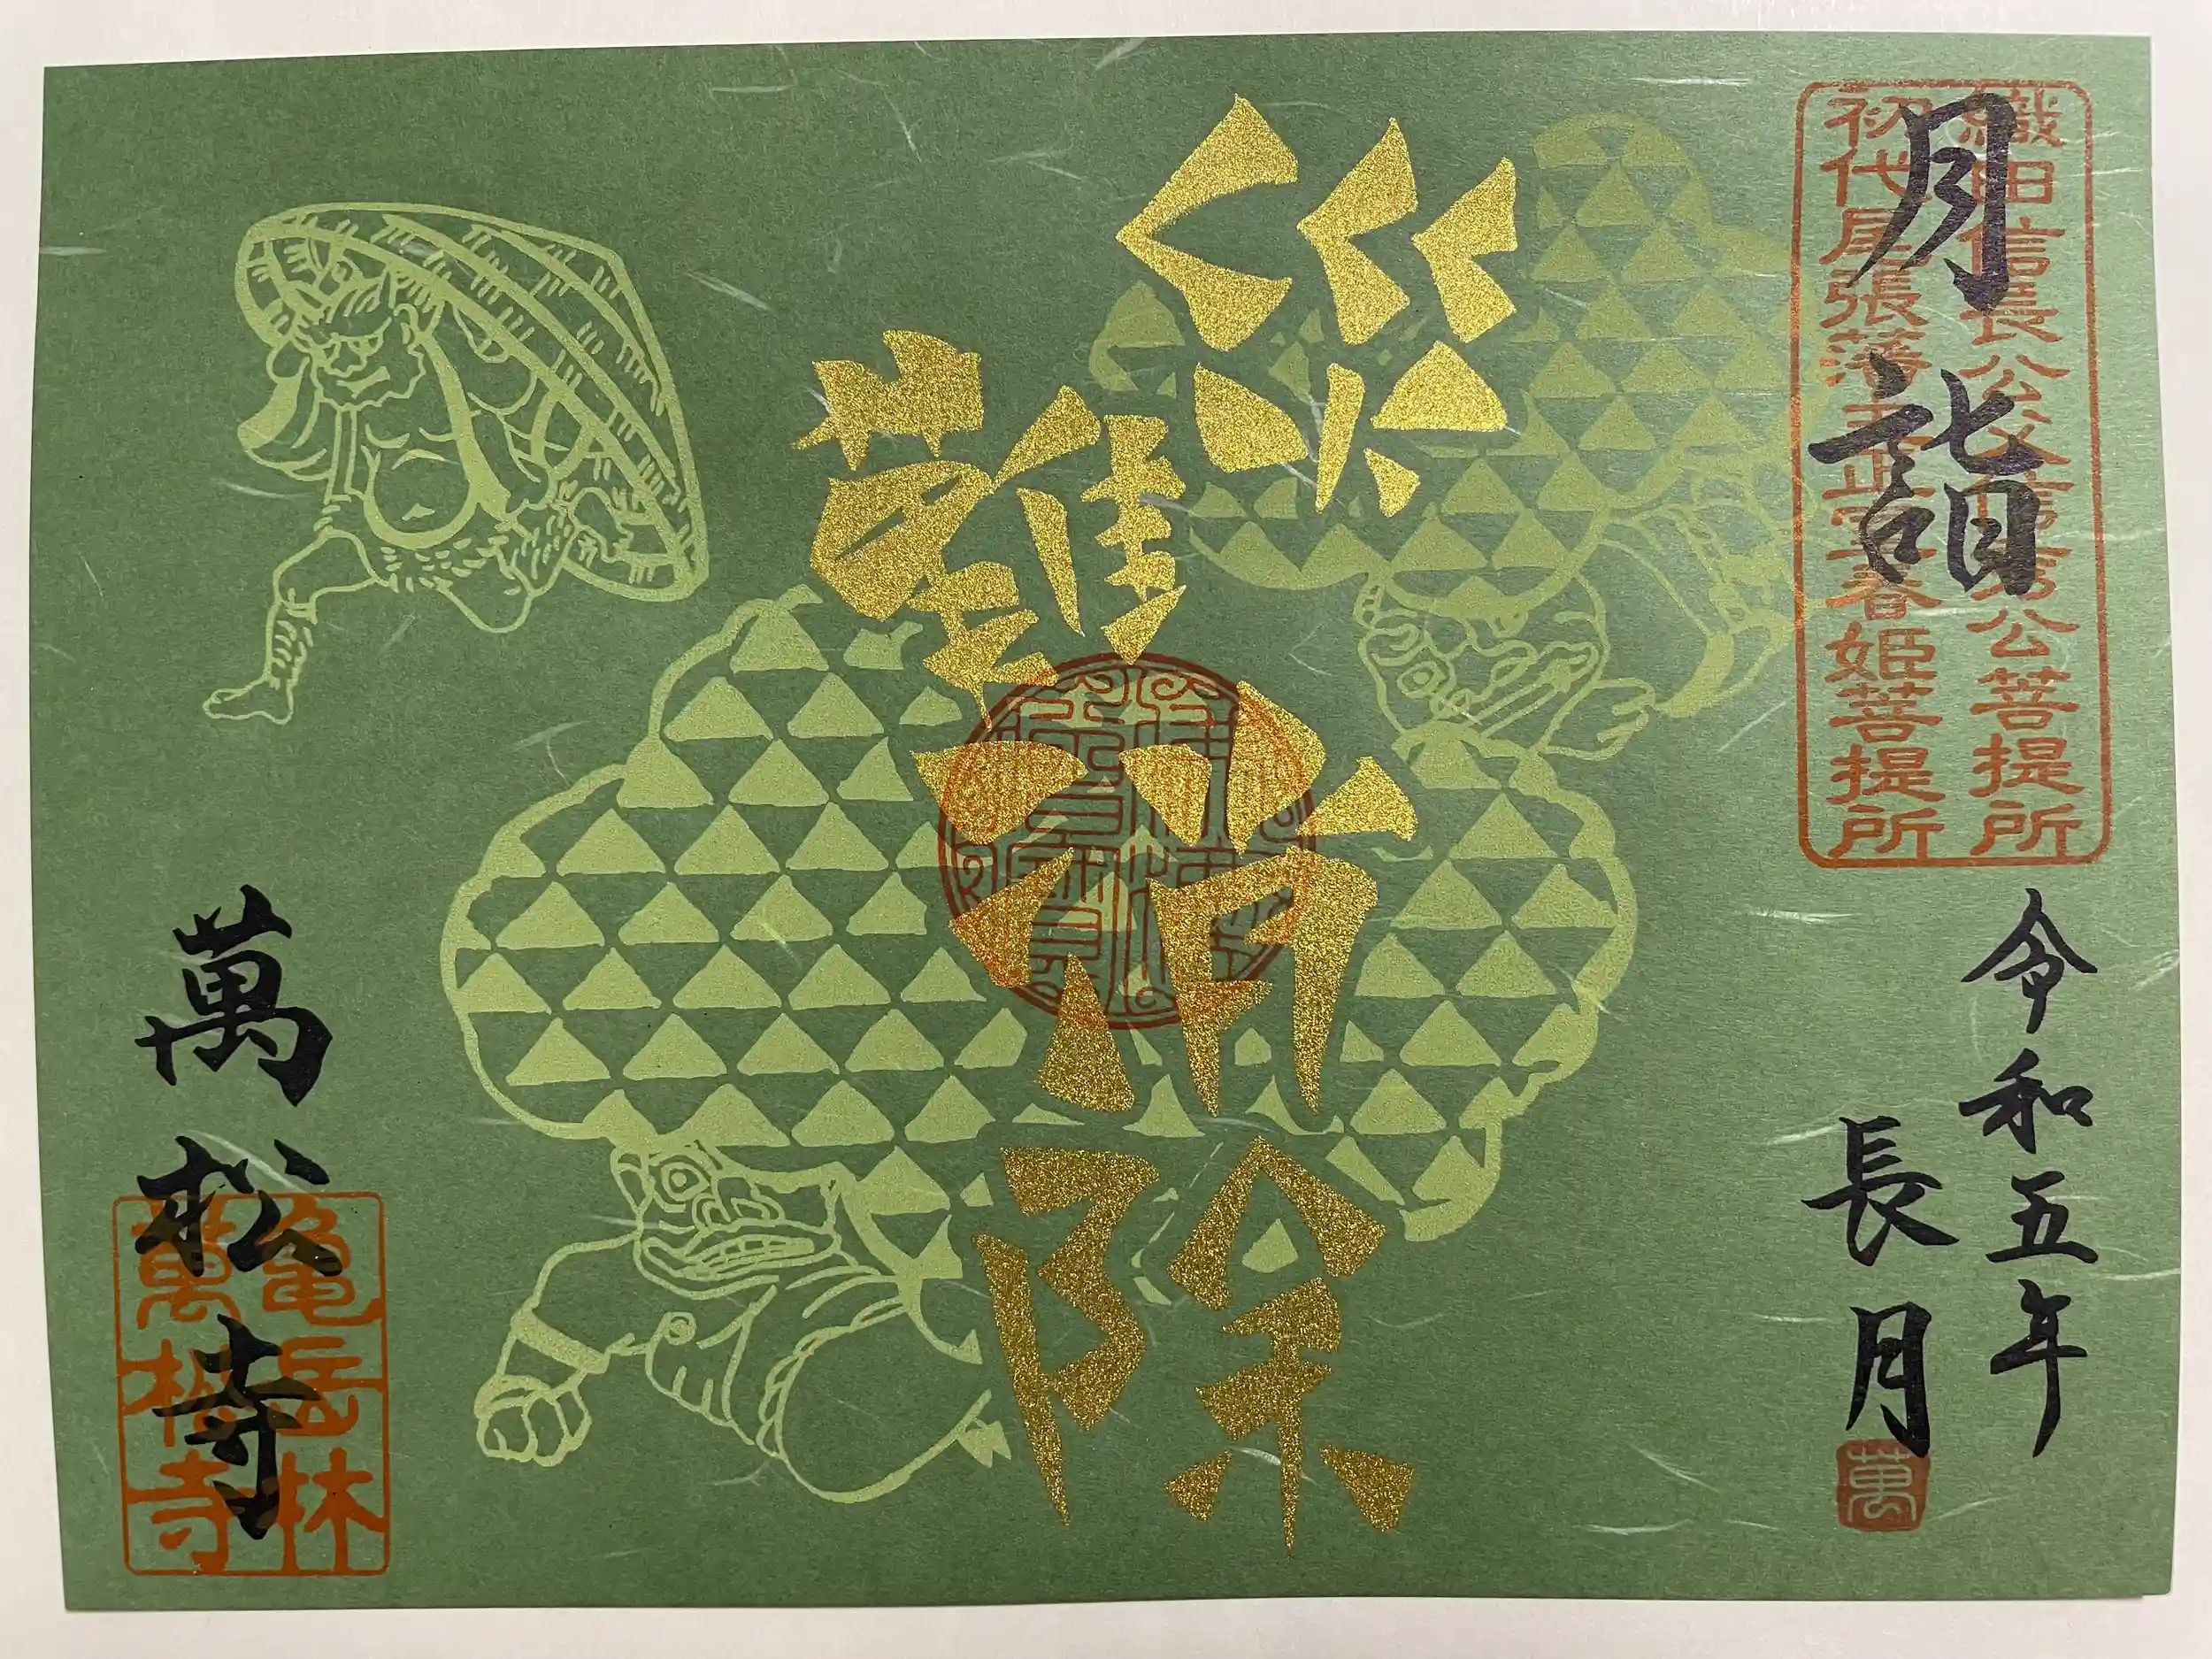 月詣
織田信長公父信秀公菩提所
初代尾張藩主正室春姫菩提所
令和五年
長月
萬
災難消除
萬松寺
亀岳林
萬松寺